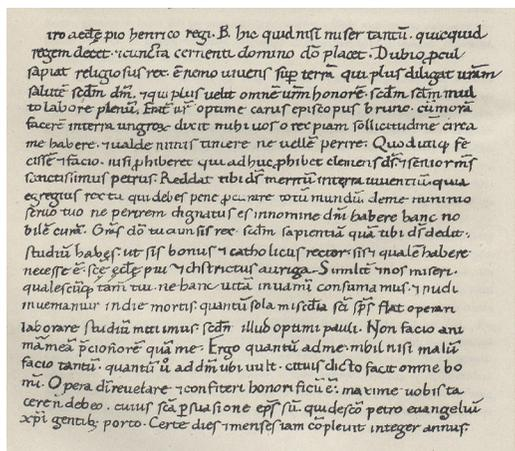 iro aeclę pio henrico regi. B. hic quid nisi miser tantū. quicquid
regem decet. ⁊ cuncta cernenti domino dō placet. Dubio ꝓcul
sapiat religiosus rex. ē nemo uiuens suꝑ terrā qui plus diligat urām
salutē scdm dm̄. ⁊ qui plus uelit omnē ur̄m honorē. scdm scdm mul
to labore plenū. Erat ur̄ optime carus episcopus bruno. cū morā
facerē in terra ungrox. dixit mihi uos o rex piam sollicitudinē circa
me habere. ⁊ ualde nimis timere ne uellē perire. Quod utiqꝫ fe
cissē ⁊ facio. nisi ꝓhiberet qui adhuc ꝓhibet clemens dr̄s. ⁊ senior mr̄s
sanctissimus petrus. Reddat tibi ds̄ meritū in terra uiuentiū. quia
egregius rex tu qui debes pene ꝓcurare totū mundū. de me minimo
seruo tuo ne perirem dignatus es in nomine dn̄i habere hanc no
bilē curā. Gr̄as dō tu cum sis rex scdm sapientiā quā tibi ds̄ dedit.
studiū habes. ut sis bonus ⁊ catholicus rector. sis ⁊ qualē habere
necesse ē. scę ęclę pius ⁊ districtus auriga. Similit̄ ⁊ nos miseri.
qualescūqꝫ tam̄ tui. ne hanc uitā in uanū consumamus. ⁊ nudi
inueniamur in die mortis. quantū sola misc̄dia sc̄i sp̄s flat operari
laborare studiū mittimus scdm illud optimi pauli. Non facio ani
mā meā p̄ciosiorē quā me. Ergo quantū ad me. nihil nisi malū
facio tantū. quantū ū ad dm̄ ubi uult. citius dicto facit omne bo
nū. Opera di reuelare ⁊ confiteri honorificū ē. maxime uobis ta
cere n̄ debeo. cuius sc̄a ꝑsuasione ep̄s sū. qui de sc̄o petro euangeliū
xp̄i gentibꝫ porto. Certe dies ⁊ menses iam cōpleuit integer annus.